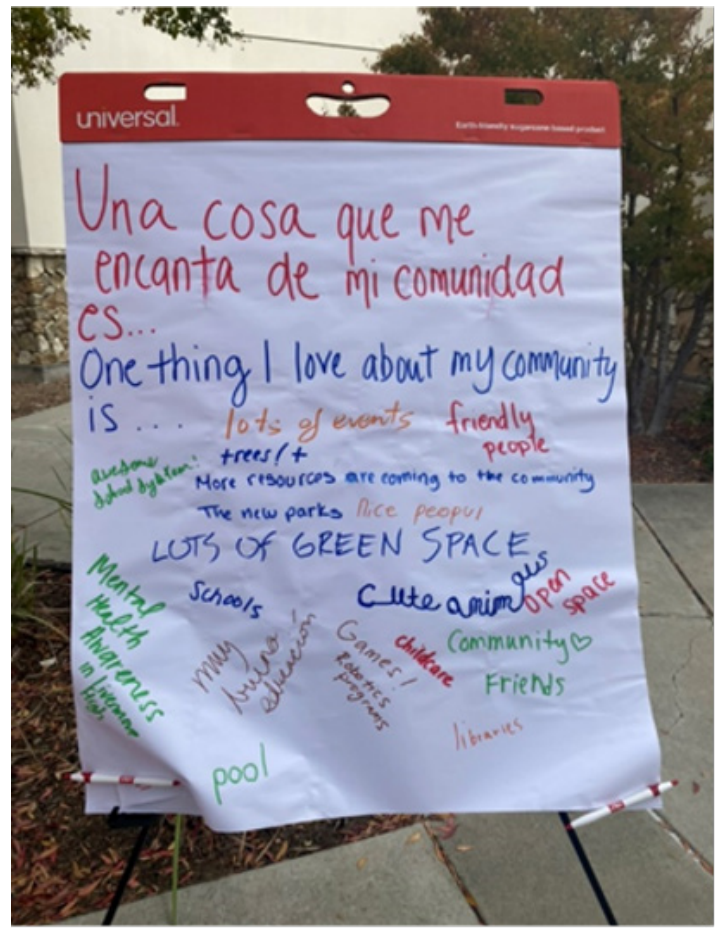 universal.
Earth-friendly sugarcane based product
Una cosa que me
encanta de mi comunidad
es...
One thing I love about my community
is ...
lots of events
friendly
people
awesome
school system!
trees! +
More resources are coming to the community
The new parks
Nice peopul
LOTS OF GREEN SPACE
Mental
Health
Awareness
in Livermore
High
Schools
Cute animals
open
space
muy
bueno
educación
Games!
Robotics
programs
childcare
Community♡
Friends
libraries
pool